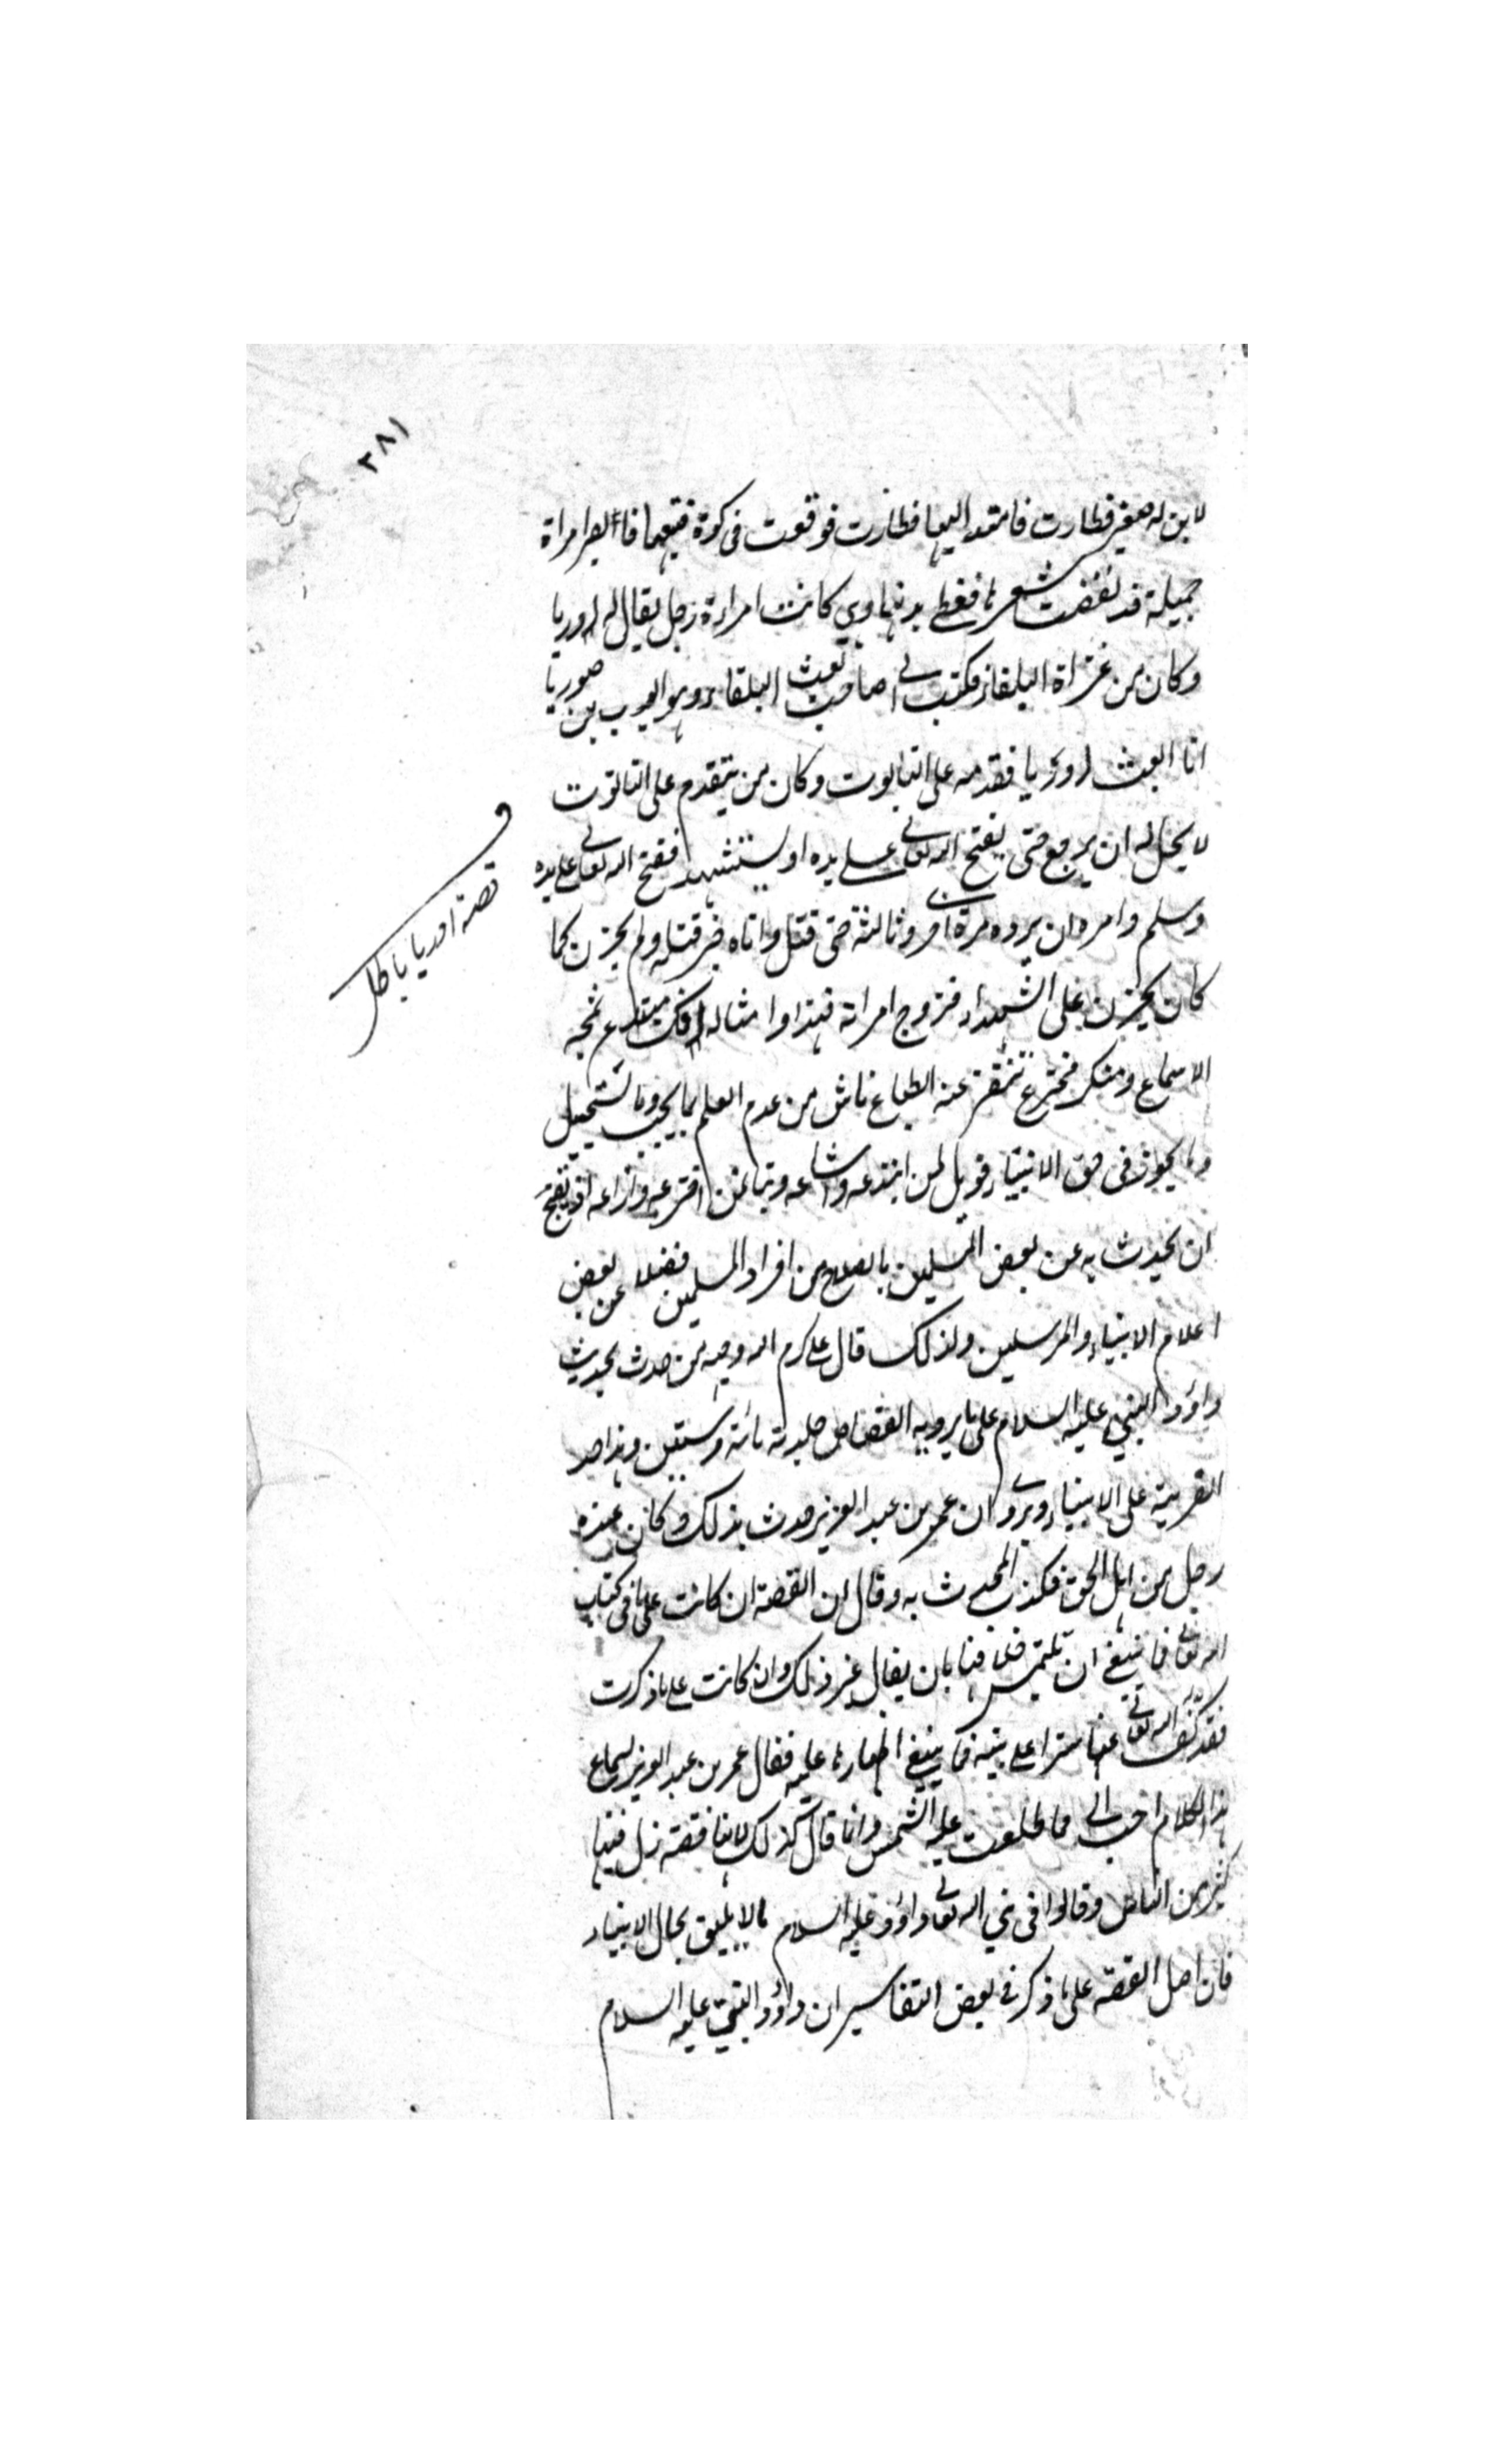 ٣٨١
لابن له صغير فطارت فامتد اليها فطارت فوقعت في كوة فتبعها فابصر امراة
جميلة قد نفضت شعرها فغطى بدنها وهي كانت امراءة رجل يقال له اوريا
وكان من غزاة البلقاء فكتب الى صاحب بعث البلقاء وهو ايوب بن صوريا
ان ابعث اوريا فقدمه على التابوت وكان من يتقدم على التابوت
لا يحل له ان يرجع حتى يفتح الله تعالى على يده او يستشهد ففتح الله تعالى على يده
وسلم وامره ان يرده مرة اخرى وثالثة حتى قتل واتاه خبر قتله ولم يحزن كما
كان يحزن على الشهداء فتزوج امراته فهذا وامثاله افك مبتدع تمجه
الاسماع ومنكر مخترع تتنفر عنه الطباع ناش من عدم العلم بما يجب وما يستحيل
وما يجوز في حق الانبياء فويل لمن ابتدعه واشاعه وتبا لمن اخترعه واذاعه اذ يقبح
ان يحدث به عن بعض المتسمين بالصلاح من افراد المسلمين فضلا عن بعض
اعلام الانبياء والمرسلين ولذلك قال علي كرم الله وجهه من حدث بحديث
داؤد النبي عليه السلام على ما يرويه القصاص جلدته مائة وستين وهذا حد
الفرية على الانبياء وروى ان عمر بن عبد العزيز حدث بذلك وكان عنده
رجل من اهل الحق فكذب المحدث به وقال ان القصة ان كانت على ما في كتاب
الله تعالى فما ينبغي ان يلتمس خلافها بان يقال غير ذلك وان كانت على ما ذكرت
فقد كف الله تعالى عنها سترا على نبيه فما ينبغي اظهارها عليه فقال عمر بن عبد العزيز لسماع
هذا الكلام احب الي مما طلعت عليه الشمس وانما قال كذلك لانها قصة زل فيها
كثير من الناس وقالوا في نبي الله تعالى داؤد عليه السلام ما لا يليق بحال الانبياء
فان اصل القصة على ما ذكر في بعض التفاسير ان داؤد النبي عليه السلام
قصة اوريا باطل